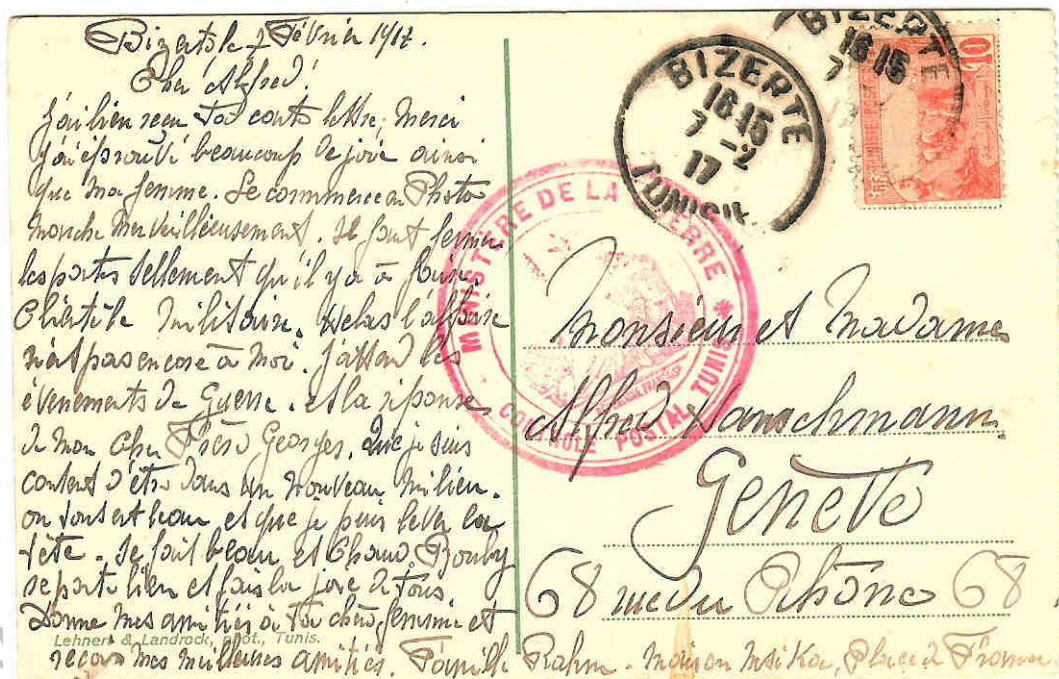 Bizerte le 7 Février 1917.
Cher Alfred!
J'ai bien reçu ta carte lettre, merci
j'ai éprouvé beaucoup de joie ainsi
que ma femme. Le commerce en Photo
marche merveilleusement. Il faut fermer
les portes tellement qu'il y a à faire.
Clientèle militaire. Helas l'affaire
n'est pas encore à moi. J'attend les
évenements de Guerre. et la réponse
de mon cher Frère Georges. Que je suis
content d'être dans un nouveau milieu.
ou tout est beau et que je puis lever la
tête. Il fait beau et Chaud. Bouby
se porte bien et fais la joie de tous
Donne mes amitiés à ta chère femme et
reçois mes meilleures amitiés. Famille Rahm. Maison Msika, Place de France.
Lehnert & Landrock, phot., Tunis.
BIZERTE
16 15
7 -2
17
TUNISIE
BIZERTE
16 15
7
10
MINISTÈRE DE LA GUERRE *
CONTROLE POSTAL TUNIS
Monsieur et Madame
Alfred
Genève
68 rue du Rhône 68